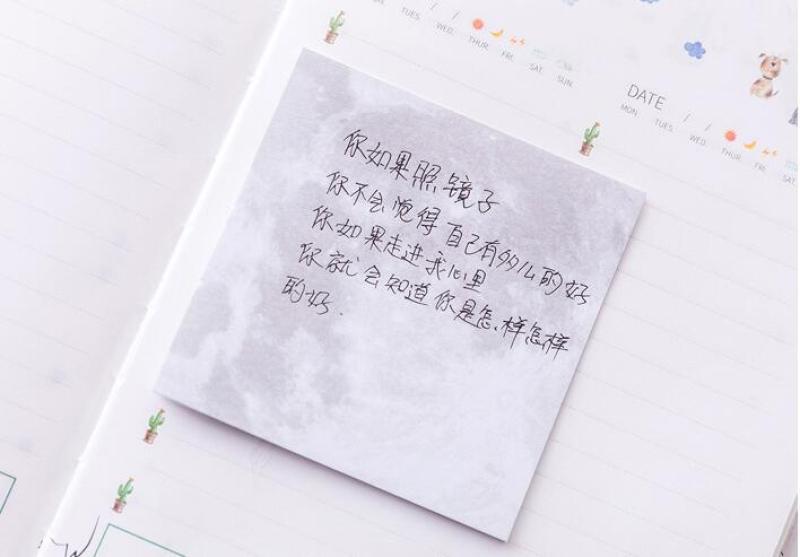 TUES.
WED.
THUR.
FRI.
SAT.
SUN.
DATE / /
MON.
TUES.
WED.
THUR.
FRI.
SAT.
你如果照镜子
你不会觉得自己有多么的好
你如果走进我心里
你就会知道你是怎样怎样
的好.